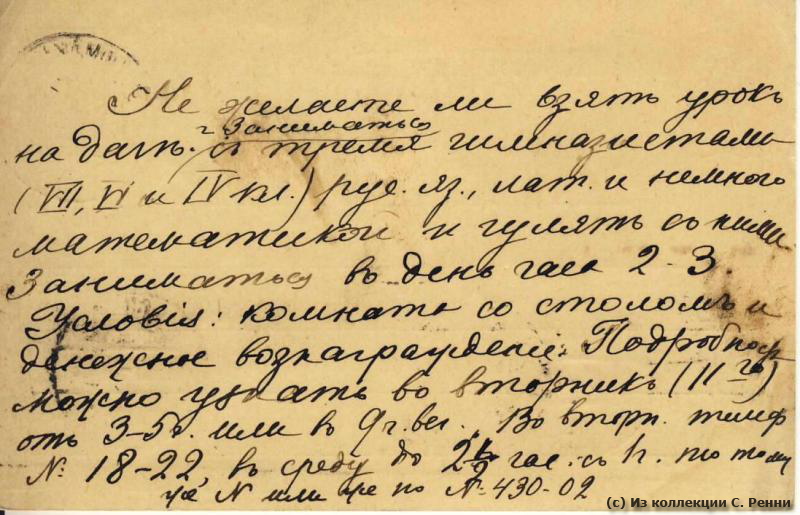 Не желаете ли взять урокъ
на дачѣ. Заниматься
съ тремя гимназистами
(VII, VI и IV кл.) рус. яз., лат. и немного
математикой и гулять съ ними
Заниматься въ день часа 2-3.
Условія: комната со столомъ и
денежное вознагражденіе. Подробност
можно узнать во вторникъ (11го)
отъ 3-5 ч. или въ 9 ч. веч. Во вторн. телеф
№ 18-22, въ среду до час. съ по тому
же № или же по № 430-02
(c) Из коллекции С. Ренни